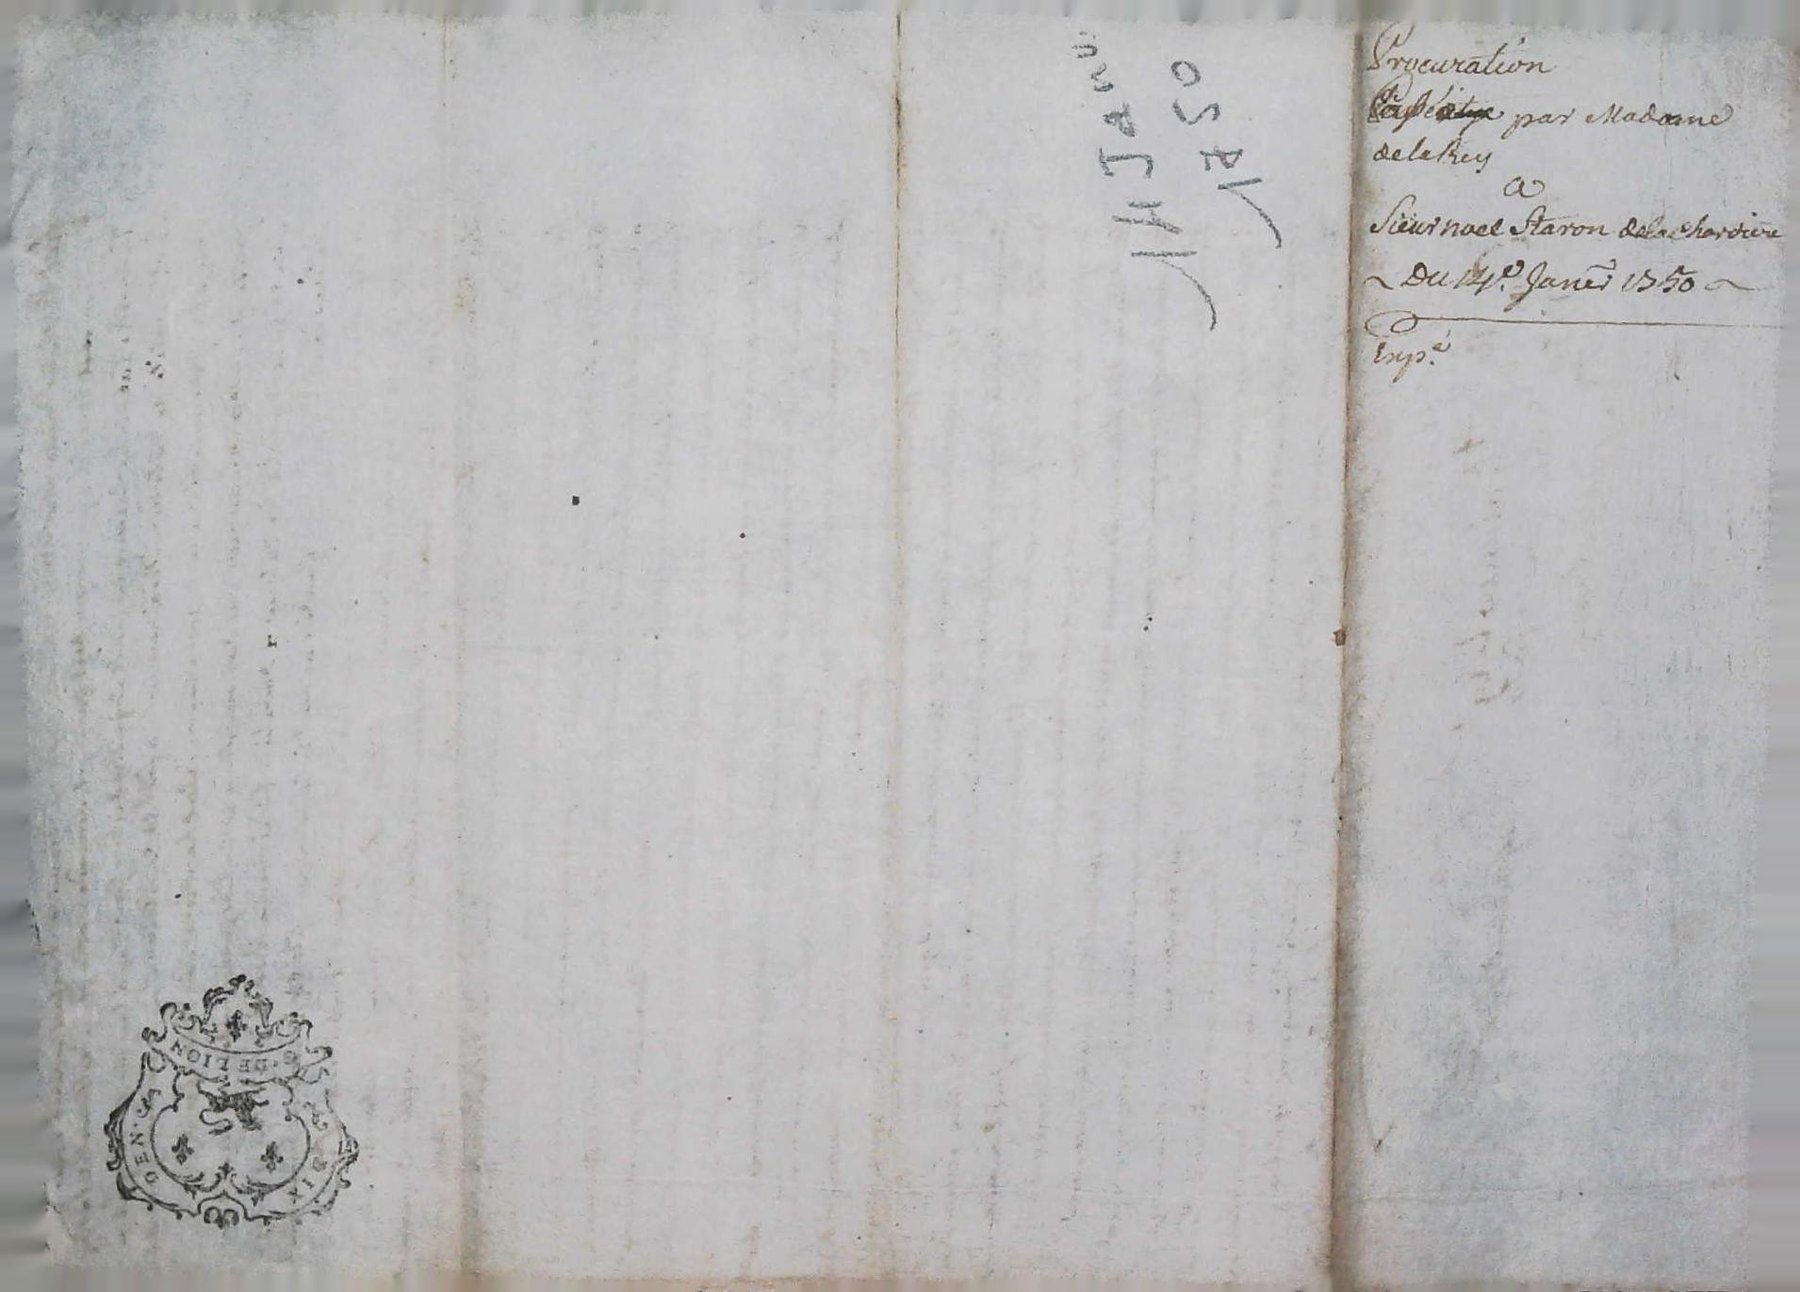 Procuration
passée par Madame
de la Rey
a
Sieur noel Staron de la Chardiere
Du 14e. Janer 1750
Expé.
14 Janv
1750
G. DE LION
DEN. SIX